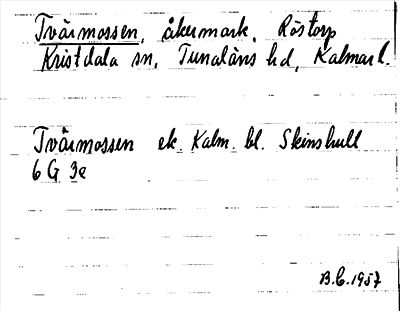 Tvärmossen, åkermark, Röstorp
Kristdala sn, Tunaläns hd, Kalmar l.
Tvärmossen ek. Kalm. bl. Skinshull
6 G 3e
B.C. 1957